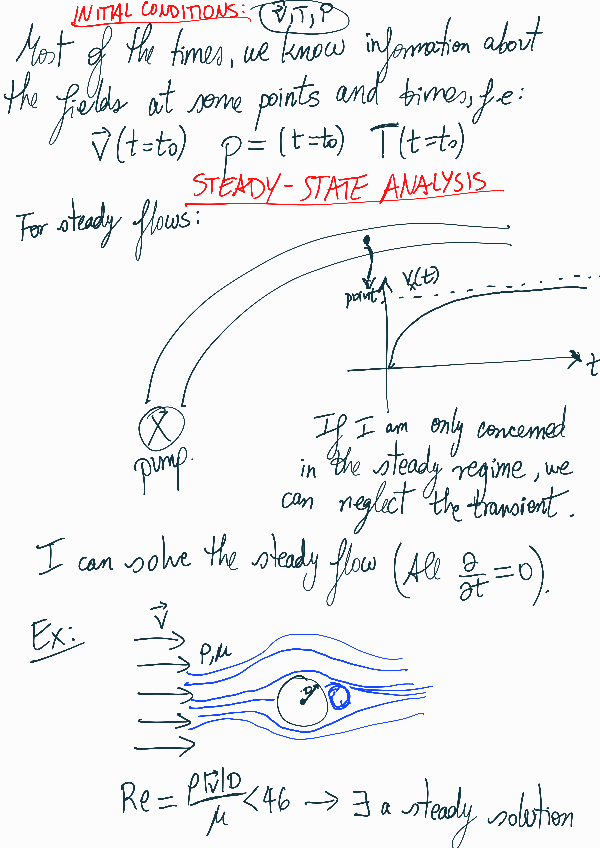 INITIAL CONDITIONS: v⃗, T, P
Most of the times, we know information about
the fields at some points and times, f.e:
v⃗(t=t₀) p=(t=t₀) T(t=t₀)
STEADY-STATE ANALYSIS
For steady flows:
point
Vx(t)
t
pump.
If I am only concerned
in the steady regime, we
can neglect the transient.
I can solve the steady flow (All ∂/∂t=0).
Ex:
v⃗
ρ,μ
D
Re = ρ|v⃗|D/μ < 46 → ∃ a steady solution